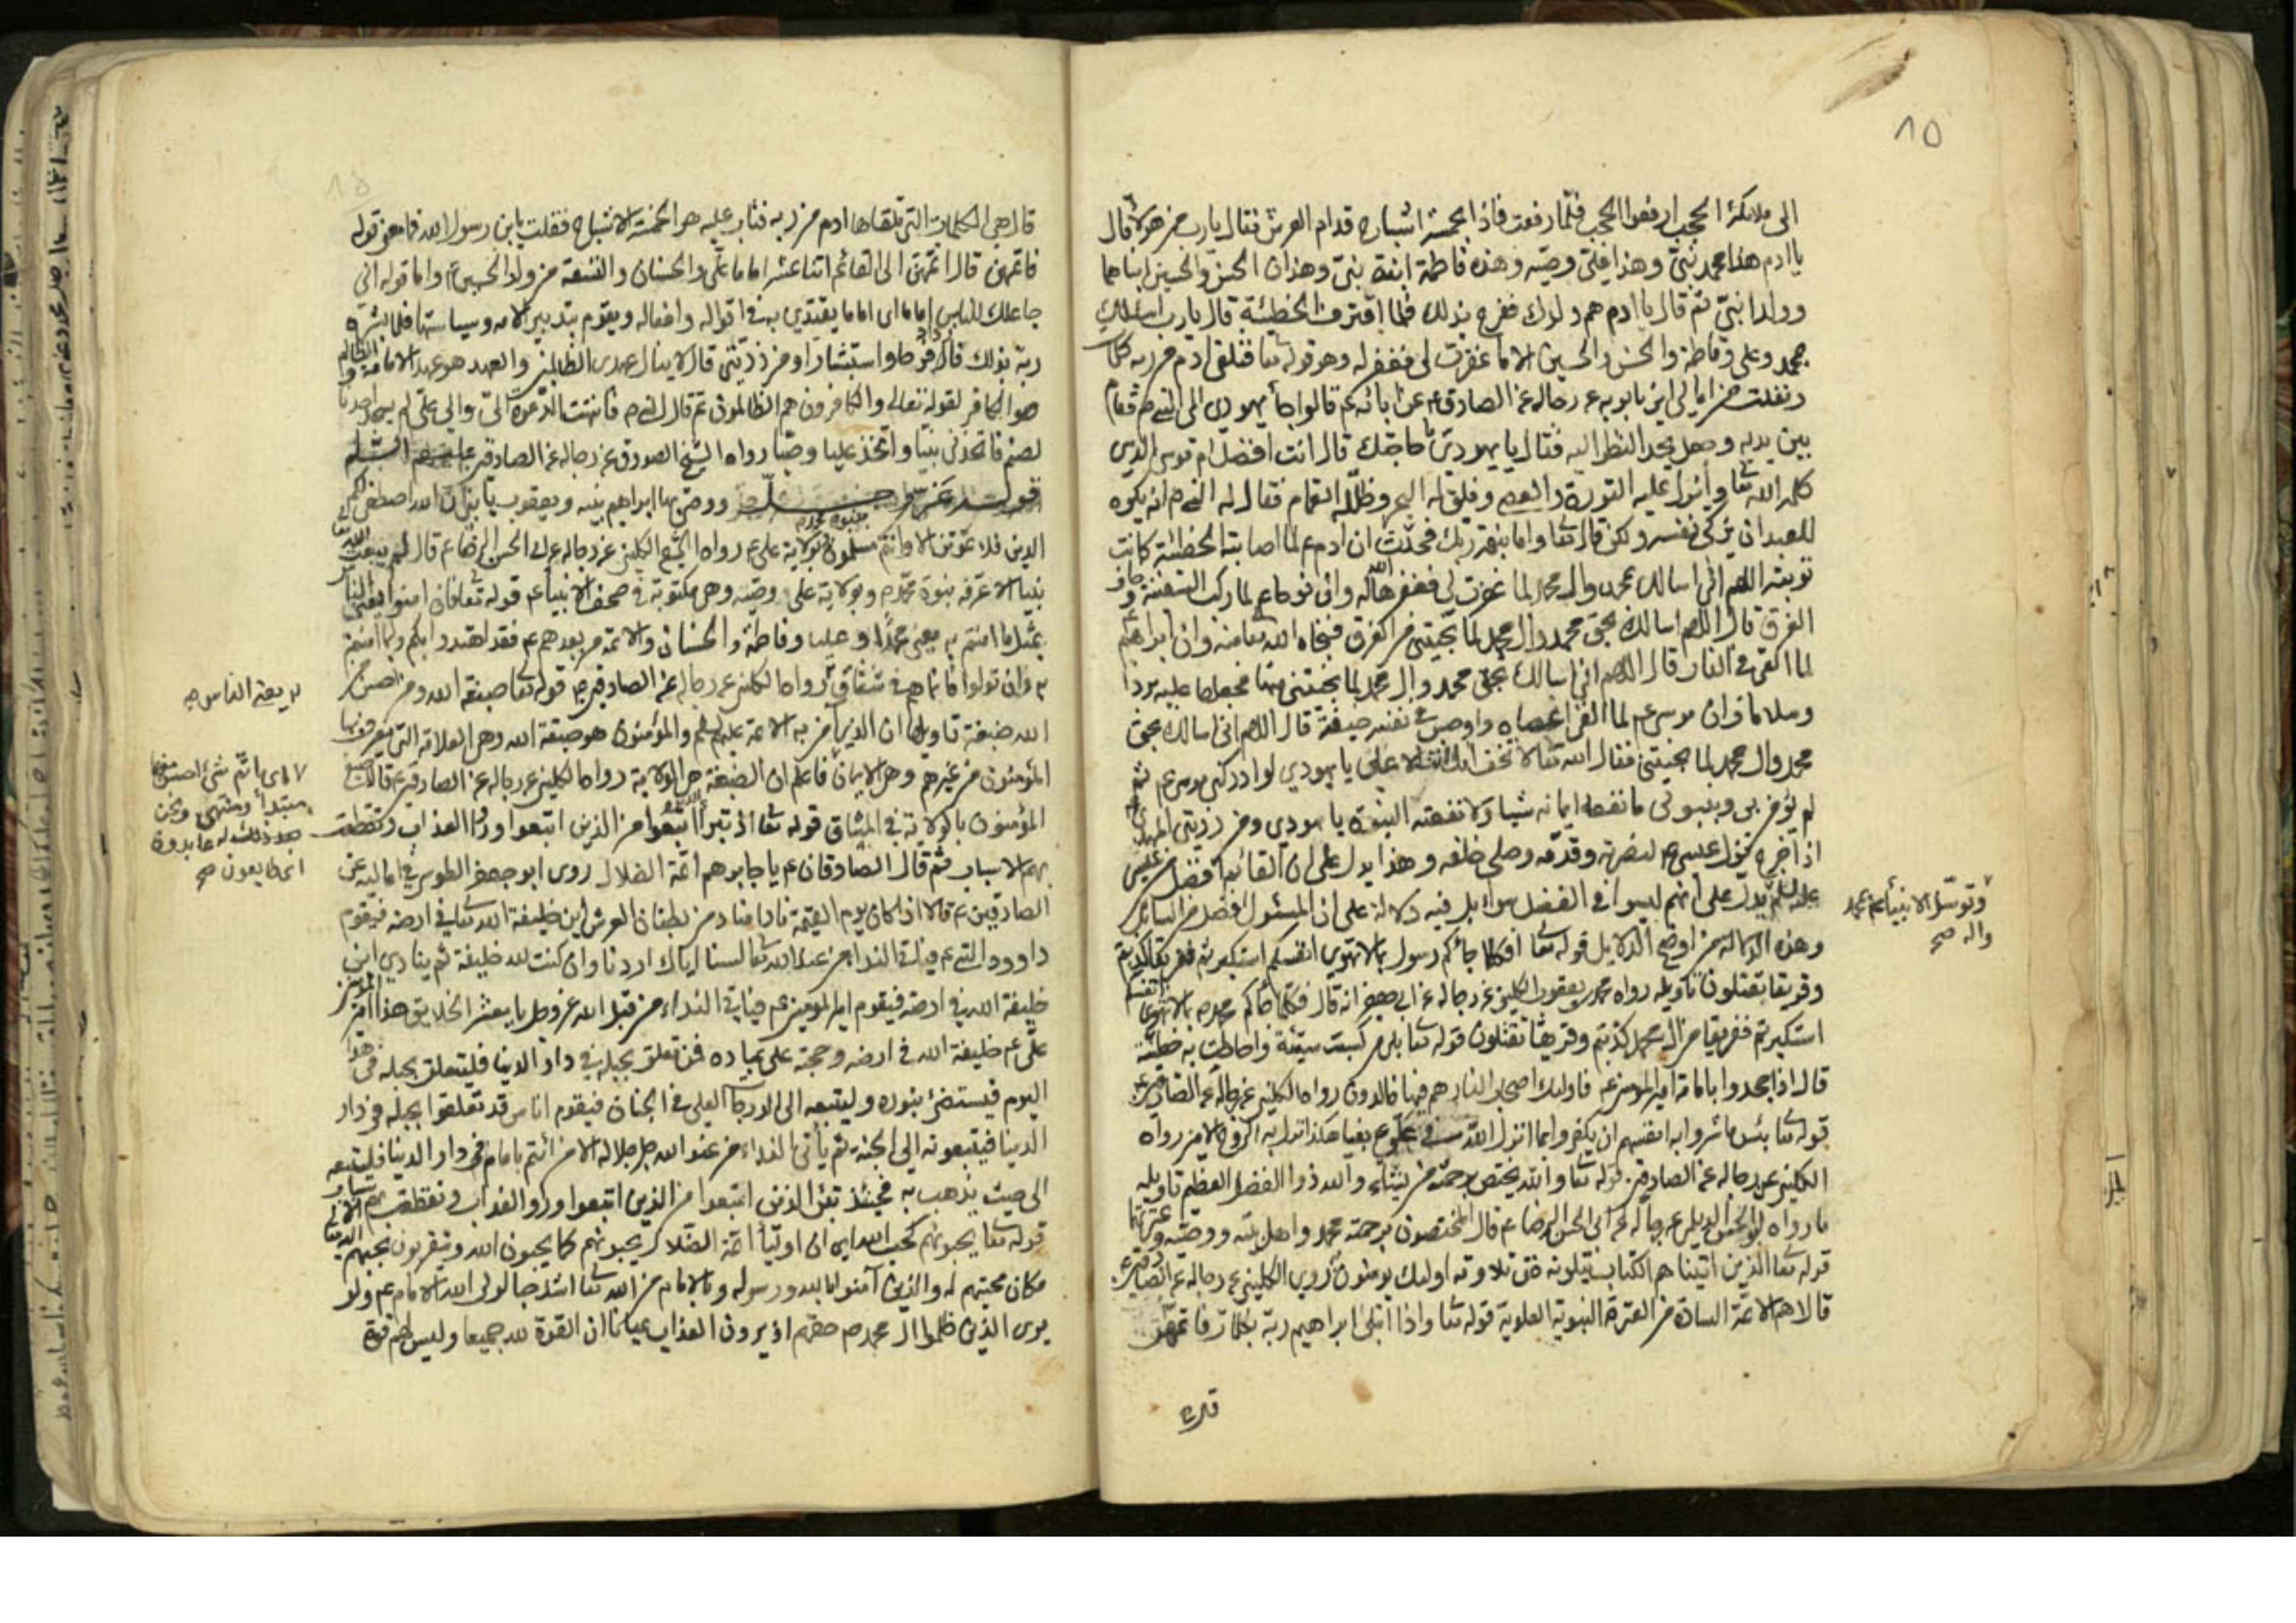 ١٥
الى ملائكة الحجب ارفعوا الحجب فلما رفعت فاذا بخمسة اشباح قدام العرش فقال يارب من هؤلاء قال
يا ادم هذا محمد نبيّ وهذا علي وصيّه وهذه فاطمة ابنة نبيّ وهذان الحسن والحسين ابناهما
وولدا نبيّ ثم قال يا ادم هم ولدك ففرح بذلك فلما اقترف الخطيئة قال يارب اسئلك
بمحمد وعلي وفاطمة والحسن والحسين الا ما غفرت لي فغفر له وهو قوله تعا فتلقى ادم من ربه كلمات
ونقلت من امالي ابن بابويه عن رجاله عن الصادق ع عن ابائه ع قالوا جاء يهودي الى النبي ص فقام
بين يديه وجعل يحد النظر اليه فقال يا يهودي ما حاجتك قال انت افضل ام موسى الذي
كلمه الله تعا وانزل عليه التورية والعصا وفلق له البحر وظلله الغمام فقال له النبي ص انه يكره
للعبد ان يزكي نفسه ولكن قال تعا واما بنعمة ربك فحدث ان ادم ع لما اصابته الخطيئة كانت
توبته اللهم اني اسالك بمحمد وال محمد لما غفرت لي فغفرها الله له وان نوحا ع لما ركب السفينة وخاف
الغرق قال اللهم اسالك بحق محمد وال محمد لما نجيتني من الغرق فنجاه الله تعا منه وان ابراهيم
لما القي في النار قال اللهم اني اسالك بحق محمد وال محمد لما نجيتني منها فجعلها عليه بردا
وسلاما وان موسى ع لما القى عصاه واوجس في نفسه خيفة قال اللهم اني اسالك بحق
محمد وال محمد لما نجيتني فقال الله تعا لا تخف انك انت الاعلى يا يهودي لو ادركني موسى ع ثم
لم يؤمن بي وبنبوتي ما نفعه ايمانه شيئا ولا نفعته النبوة يا يهودي ومن ذريتي المهدي
اذا خرج نزل عيسى ع لنصرته وقدمه وصلى خلفه وهذا يدل على ان القائم افضل من عيسى
يدل على انهم ليسوا في الفضل سواء بل فيه دلالة على ان المسئول افضل من السائل
وتوسّل الانبياء ع بمحمد
واله صح
وهذه الدلالة من اوضح الدلايل قوله تعا افكلما جائكم رسول بما لا تهوى انفسكم استكبرتم ففريقا كذبتم
وفريقا تقتلون تاويله رواه محمد بن يعقوب الكليني عن رجاله عن ابي جعفر انه قال فكلما جائكم محمد ص بما لا تهوى انفسكم
استكبرتم ففريقا من ال محمد كذبتم وفريقا تقتلون قوله تعا بلى من كسب سيئة واحاطت به خطيئته
قال اذا جحدوا بامامة امير المؤمنين ع فاولئك اصحاب النار هم فيها خالدون رواه الكليني عن رجاله عن الصادقين ع
قوله تعا بئس ما شروا به انفسهم ان يكفروا بما انزل الله في علي ع بغيا هكذا نزل به الروح الامين رواه
الكليني عن رجاله عن الصادقين قوله تعا والله يختص برحمته من يشاء والله ذو الفضل العظيم تاويله
ما رواه ابو الحسن الديلمي عن رجاله عن ابي الحسن الرضا ع قال المختصون برحمته محمد واهل بيته ووصيّه وعترتهما
قوله تعا الذين اتيناهم الكتاب يتلونه حق تلاوته اولئك يؤمنون به روى الكليني عن رجاله عن الصادقين ع
قالا هم الائمة السادة من العترة النبوية العلوية قوله تعا واذا ابتلى ابراهيم ربه بكلمات فاتمهن
قال
قال هي الكلمات التي تلقاها ادم من ربه فتاب عليه هو الخمسة الاشباح فقلت يا ابن رسول الله فما معنى قوله
فاتمهن قال اتمهن الى القائم اثنا عشر اماما علي والحسنان والتسعة من ولد الحسين ع واما قوله اني
جاعلك للناس اماما اي اماما يقتدى به في اقواله وافعاله ويقوم بتدبير الامة وسياستها فلما بشره
ربه بذلك قال فرحا واستبشارا ومن ذريتي قال لا ينال عهدي الظالمين والعهد هو عهد الامامة والظالم
هو الكافر لقوله تعالى والكافرون هم الظالمون ثم قال النبي ص فانتهت الدعوة اليّ والى علي لم يسجد احدنا
لصنم فاتخذني نبيا واتخذ عليا وصيّا رواه الشيخ الصدوق عن رجاله عن الصادقين عليهم السلام
قوله عز وجل ووصى بها ابراهيم بنيه ويعقوب يا بني ان الله اصطفى لكم
الدين فلا تموتن الا وانتم مسلمون بنبوة محمد ص وبولاية علي ع رواه الشيخ الكليني عن رجاله عن ابي الحسن الرضا ع قال لم يبعث الله تعا
نبيا الا عرفه بنبوة محمد ص وبولاية علي وصيّه وهي مكتوبة في صحف الانبياء ع قوله تعا فان امنوا يعني الناس
بمثل ما امنتم به يعني محمدا وعليا وفاطمة والحسنان والائمة من بعدهم ع فقد اهتدوا بكم وبما امنتم
به وان تولوا فانما هم في شقاق رواه الكليني عن رجاله عن الصادقين ع قوله تعا صبغة الله ومن احسن من
به يعني الناس صح
الله صبغة تاويلها ان الذين امن به الائمة عليهم والمؤمنون هو صبغة الله وهي العلامة التي يعرف بها
المؤمنون من غيرهم وهي الايمان فاعلم ان الصبغة هي الولاية رواه الكليني عن رجاله عن الصادقين ع قالا صبغ
المؤمنون بالولاية في الميثاق قوله تعا اذ تبرأ الذين اتبعوا من الذين اتبعوا وراوا العذاب وتقطعت
بهم الاسباب ثم قال الصادقان ع يا جابر هم ائمة الضلال روى ابو جعفر الطوسي في اماليه عن
الصادقين ع قالا اذا كان يوم القيمة نادا مناد من بطنان العرش اين خليفة الله تعا في ارضه فيقوم
داوود النبي ع فيأتي النداء من عند الله تعا لسنا اياك اردنا وان كنت لله خليفة ثم ينادي اين
خليفة الله في ارضه فيقوم امير المؤمنين ع فياتي النداء من قبل الله عز وجل يا معشر الخلايق هذا امير المؤمنين
علي ع خليفة الله في ارضه وحجته على عباده فمن تعلق بحبله في دار الدنيا فليتعلق بحبله في هذا
اليوم فيستضئ بنوره وليتبعه الى الدرجات العلى في الجنان فيقوم اناس قد تعلقوا بحبله في دار
الدنيا فيتبعونه الى الجنة ثم يأتي النداء من عند الله جل جلاله الا من ائتم بامام في دار الدنيا فليتبعه
الى حيث يذهب به فحينئذ تبرأ الذين اتبعوا من الذين اتبعوا وراوا العذاب وتقطعت بهم الاسباب
قوله تعا يحبونهم كحب الله اي ان اولياء ائمة الضلال يحبونهم كما يحبون الله ويتقربون بحبهم الى الله تعا
مكان محبتهم له والذين آمنوا بالله ورسوله وبالامام من الله تعا اشد حبا لولي الله الامام ع ولو
يرى الذين ظلموا ال محمد ص حقهم اذ يرون العذاب عيانا ان القوة لله جميعا وليس لهم قوة